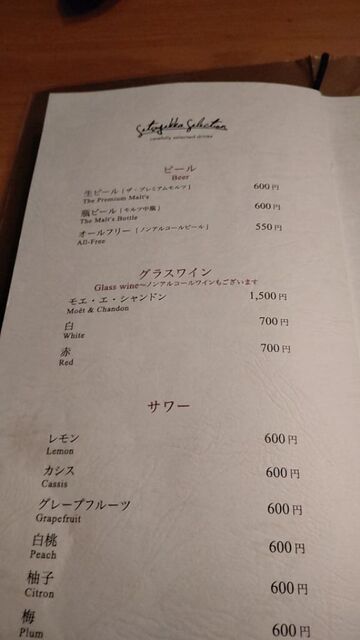 Setsugekka Selection
carefully selected drinks
ビール
Beer
生ビール [ザ・プレミアムモルツ] 600円
The Premium Malt's
瓶ビール [モルツ中瓶] 600円
The Malt's Bottle
オールフリー [ノンアルコールビール] 550円
All-Free
グラスワイン
Glass wine～ノンアルコールワインもございます
モエ・エ・シャンドン 1,500円
Moët & Chandon
白 700円
White
赤 700円
Red
サワー
レモン 600円
Lemon
カシス 600円
Cassis
グレープフルーツ 600円
Grapefruit
白桃 600円
Peach
柚子 600円
Citron
梅 600円
Plum